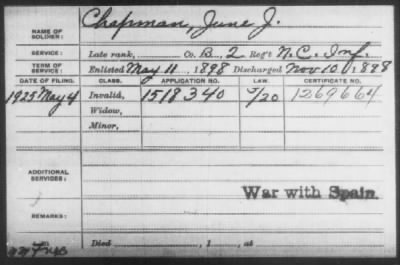 NAME OF SOLDIER: Chapman, June J.
SERVICE: Late rank, Co. B, 2 Reg't N.C. Inf.
TERM OF SERVICE: Enlisted May 11, 1898 Discharged Nov 10, 1898
DATE OF FILING. CLASS. APPLICATION NO. LAW. CERTIFICATE NO.
1925 May 4 Invalid, 1518340 5/20 1269664
Widow,
Minor,
ADDITIONAL SERVICES:
War with Spain.
REMARKS:
Died , 1 , at